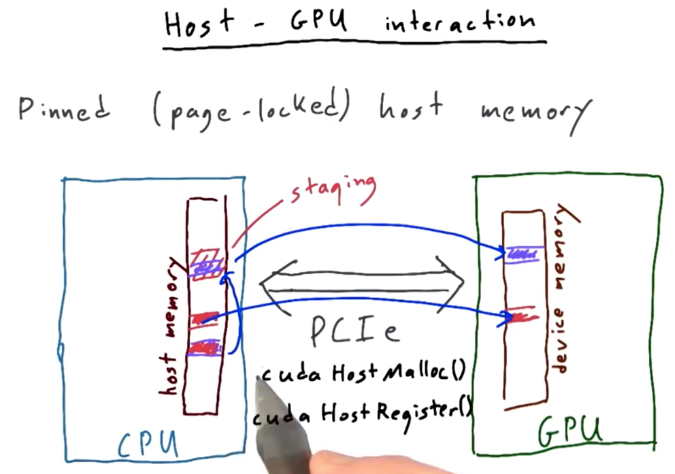 Host - GPU interaction
Pinned (page-locked) host memory
staging
host memory
device memory
PCIe
cuda Host Malloc()
cuda Host Register()
CPU
GPU